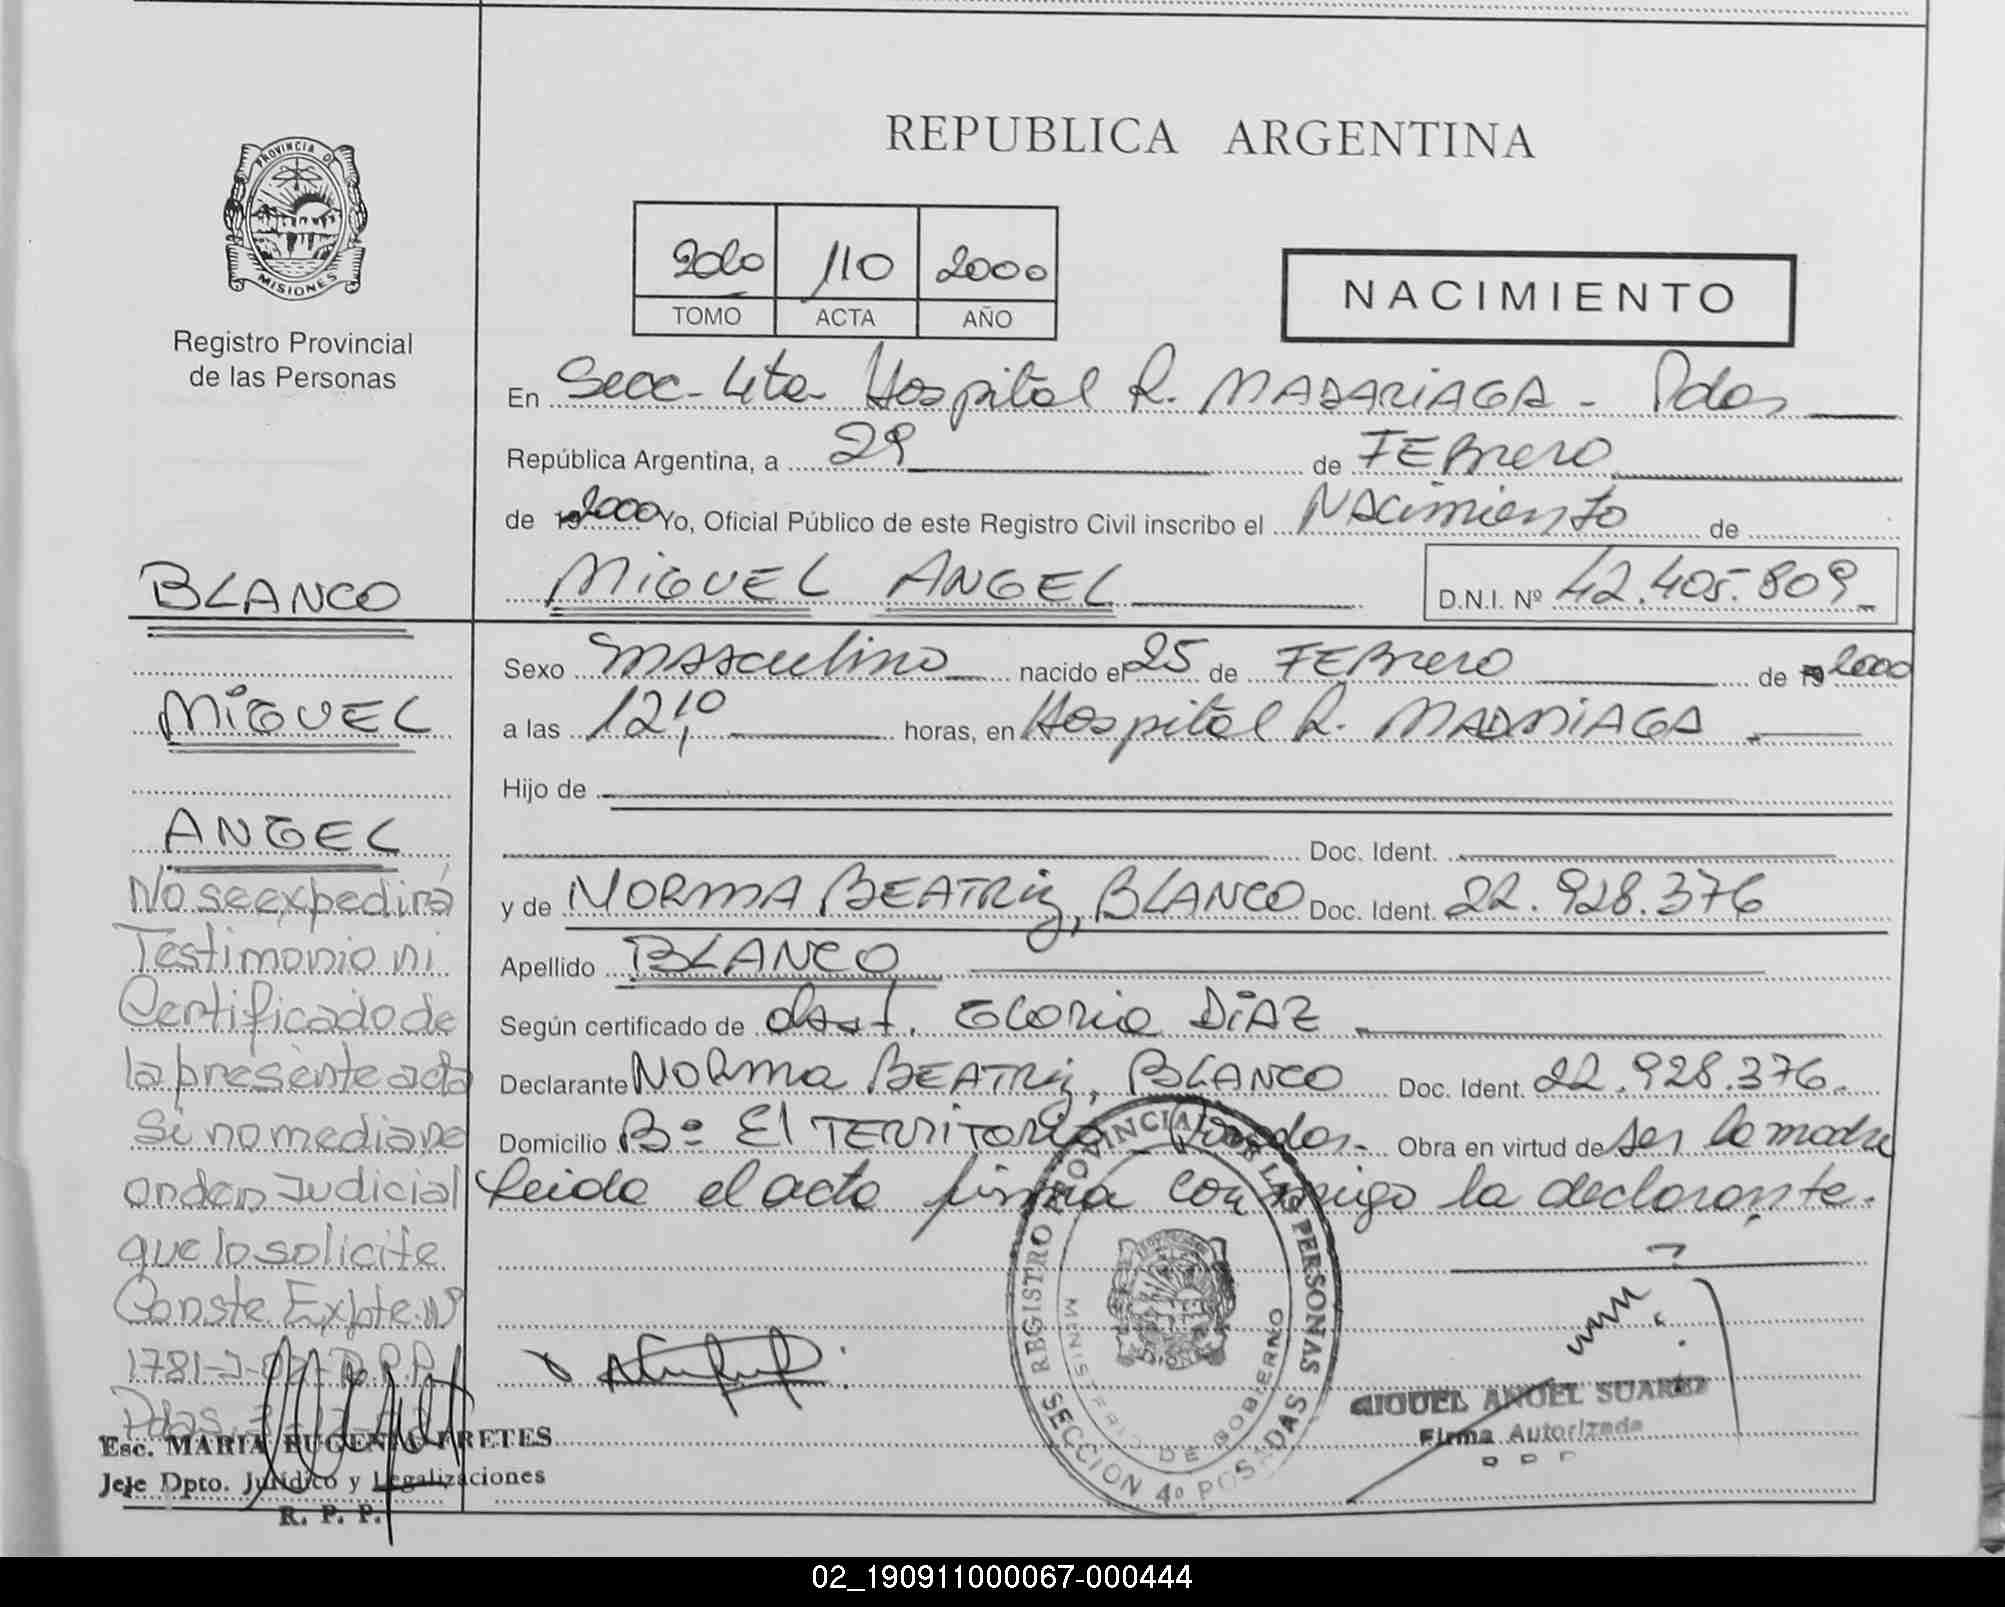 REPUBLICA ARGENTINA
PROVINCIA DE
MISIONES
Registro Provincial
de las Personas
2000 110 2000
TOMO ACTA AÑO
NACIMIENTO
En Secc. 4ta. Hospital R. MADARIAGA - Pdas
República Argentina, a 29 de FEBrero
de 19 2000 Yo, Oficial Público de este Registro Civil inscribo el NAcimiento de
MIGUEL ANGEL D.N.I. Nº 42.405.809
Sexo mAsculino nacido el 25 de FEBrero de 19 2000
a las 12,10 horas, en Hospital R. MADARIAGA
Hijo de
Doc. Ident.
y de NORMA BEATRiz, BLANCO Doc. Ident. 22.928.376
Apellido BLANCO
Según certificado de obst. GLORIA DIAZ
Declarante NORMA BEATRiz, BLANCO Doc. Ident. 22.928.376
Domicilio Bº El TERRITORIO Posadas.- Obra en virtud de ser la madre
leida el acta firma conmigo la declarante.
BLANCO
MIGUEL
ANGEL
No se expedirá
Testimonio ni
Certificado de
la presente acta
si no mediare
orden Judicial
que lo solicite
Conste Expte. nº
1781-J-02-R.P.P.
Pdas.
Esc. MARIA EUGENIA FRETES
Jefe Dpto. Jurídico y Legalizaciones
R. P. P.
REGISTRO PROVINCIAL DE LAS PERSONAS
SECCION 4º POSADAS
MINISTERIO DE GOBIERNO
MIGUEL ANGEL SUAREZ
Firma Autorizada
02_190911000067-000444